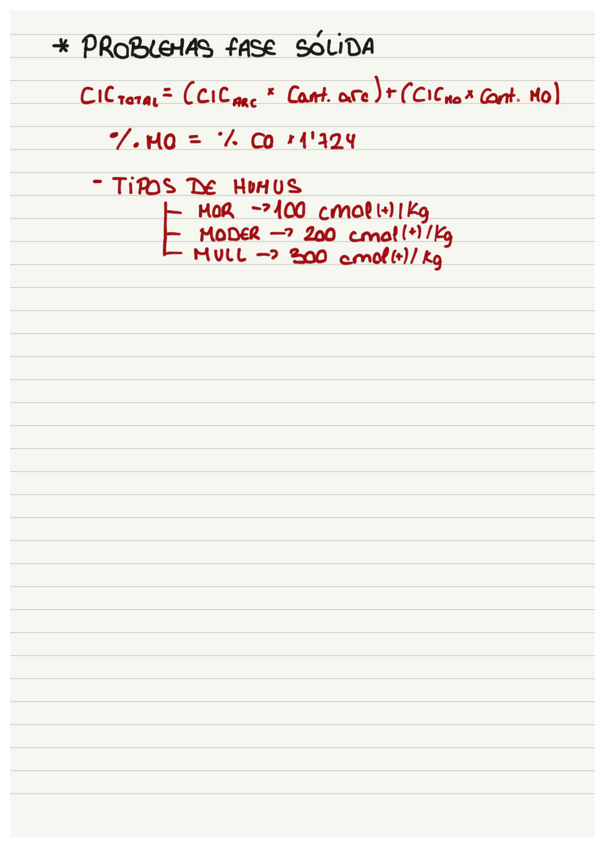 * PROBLEMAS FASE SÓLIDA
CIC TOTAL = (CIC ARC * Cant. arc) + (CIC MO * Cant. MO)
%. MO = % CO * 1'724
- TIPOS DE HUMUS
MOR -> 100 cmol(+)/Kg
MODER -> 200 cmol(+)/Kg
MULL -> 300 cmol(+)/Kg